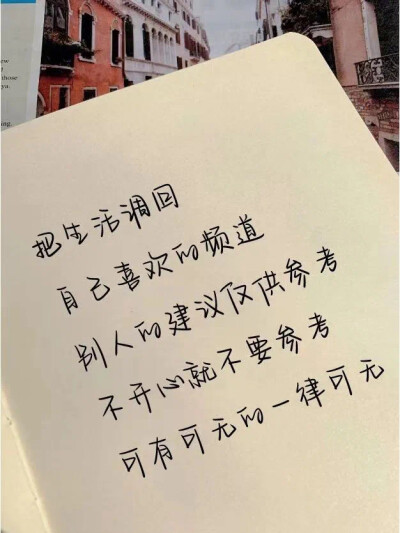 把生活调回
自己喜欢的频道
别人的建议仅供参考
不开心就不要参考
可有可无的一律可无